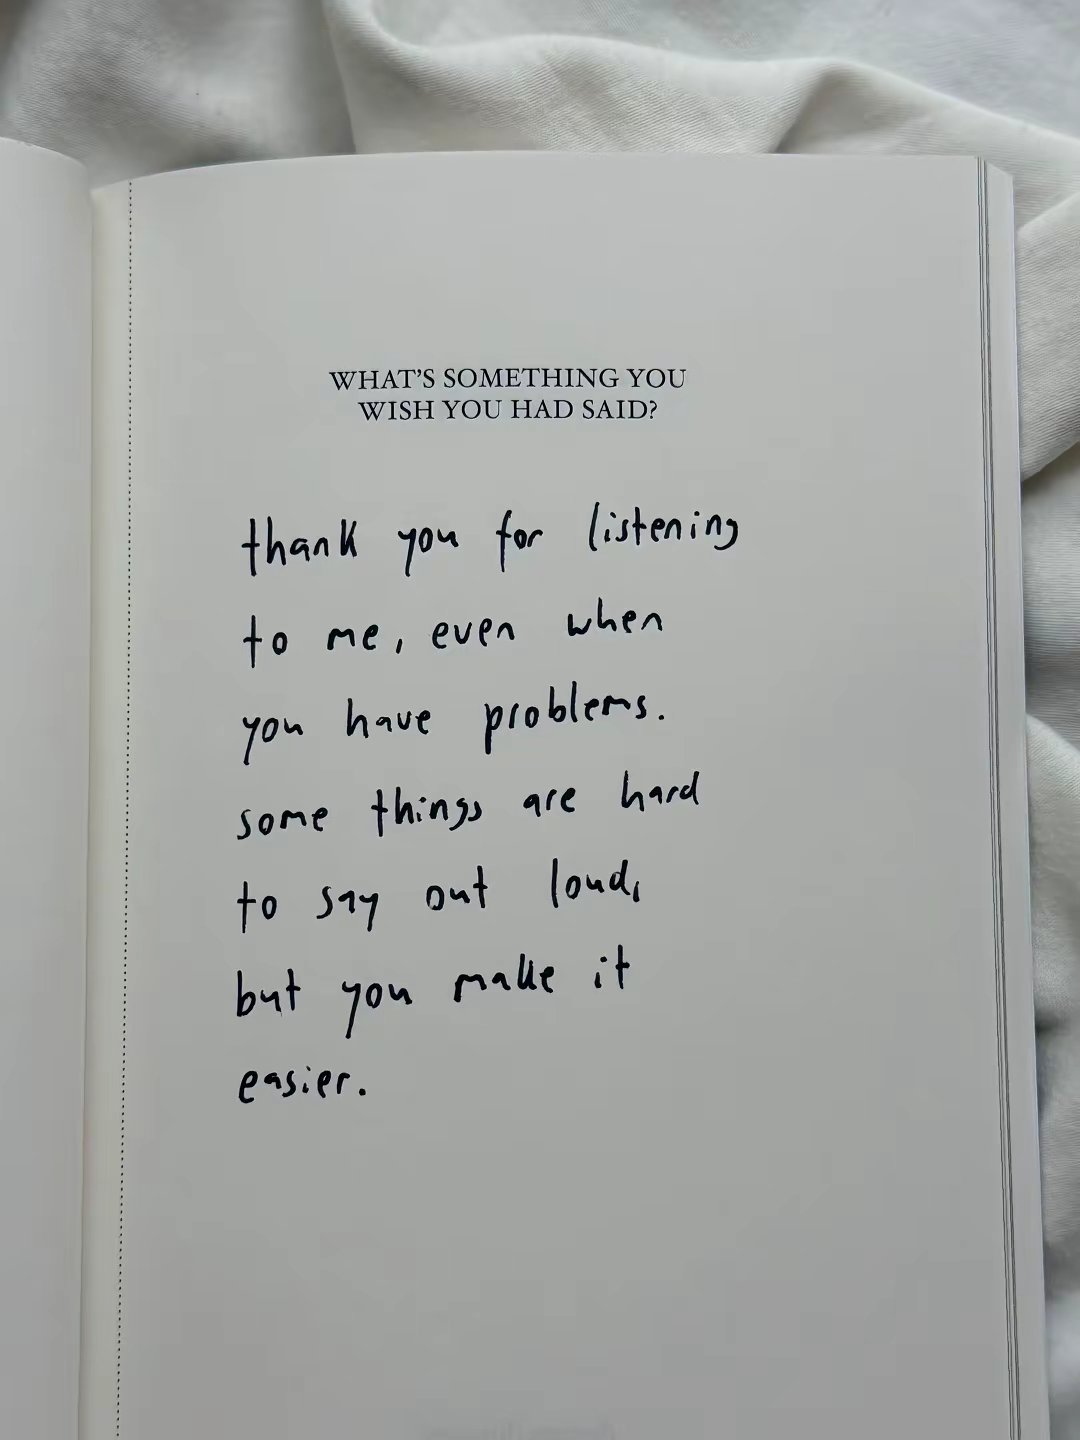 WHAT'S SOMETHING YOU
WISH YOU HAD SAID?
thank you for listening
to me, even when
you have problems.
some things are hard
to say out loud,
but you make it
easier.